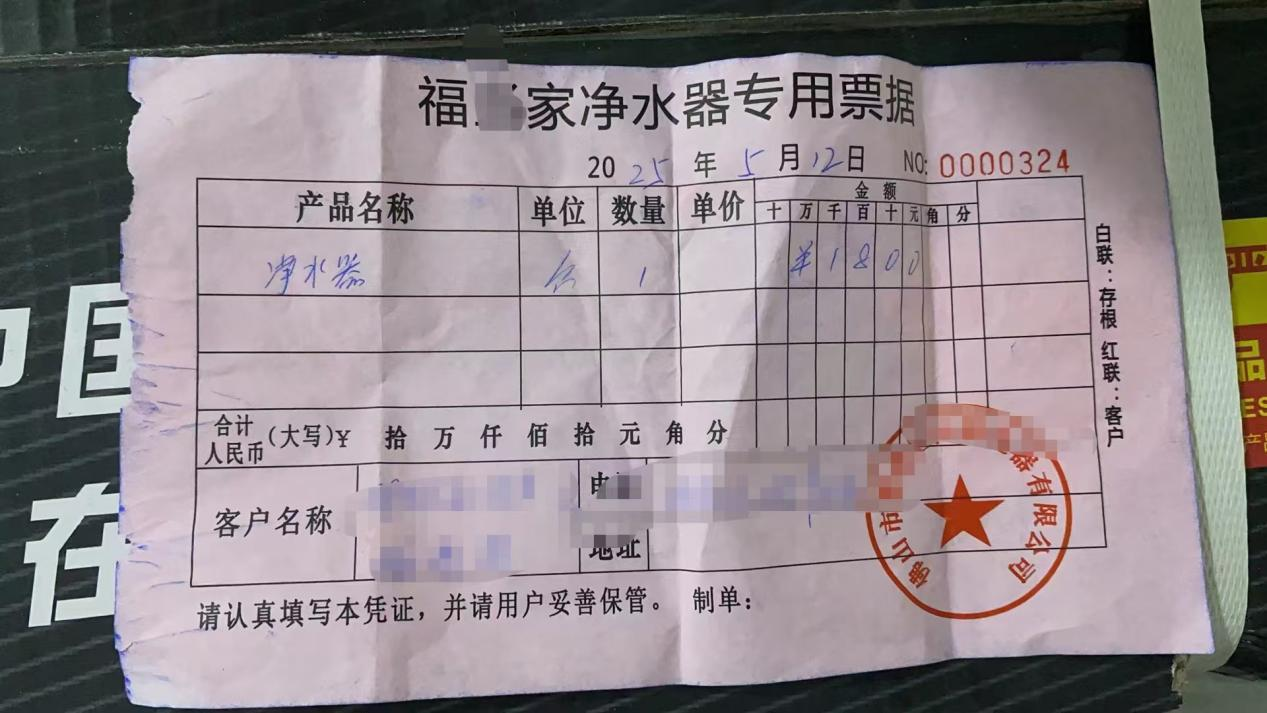 福 家净水器专用票据
2025年5月12日 NO: 0000324
产品名称 单位 数量 单价 金额
十 万 千 百 十 元 角 分
净水器 台 1 ¥1800
合计
人民币 (大写)¥ 拾 万 仟 佰 拾 元 角 分
客户名称
地址
请认真填写本凭证,并请用户妥善保管。 制单:
白联:存根 红联:客户
佛山市 器有限公司
在
品